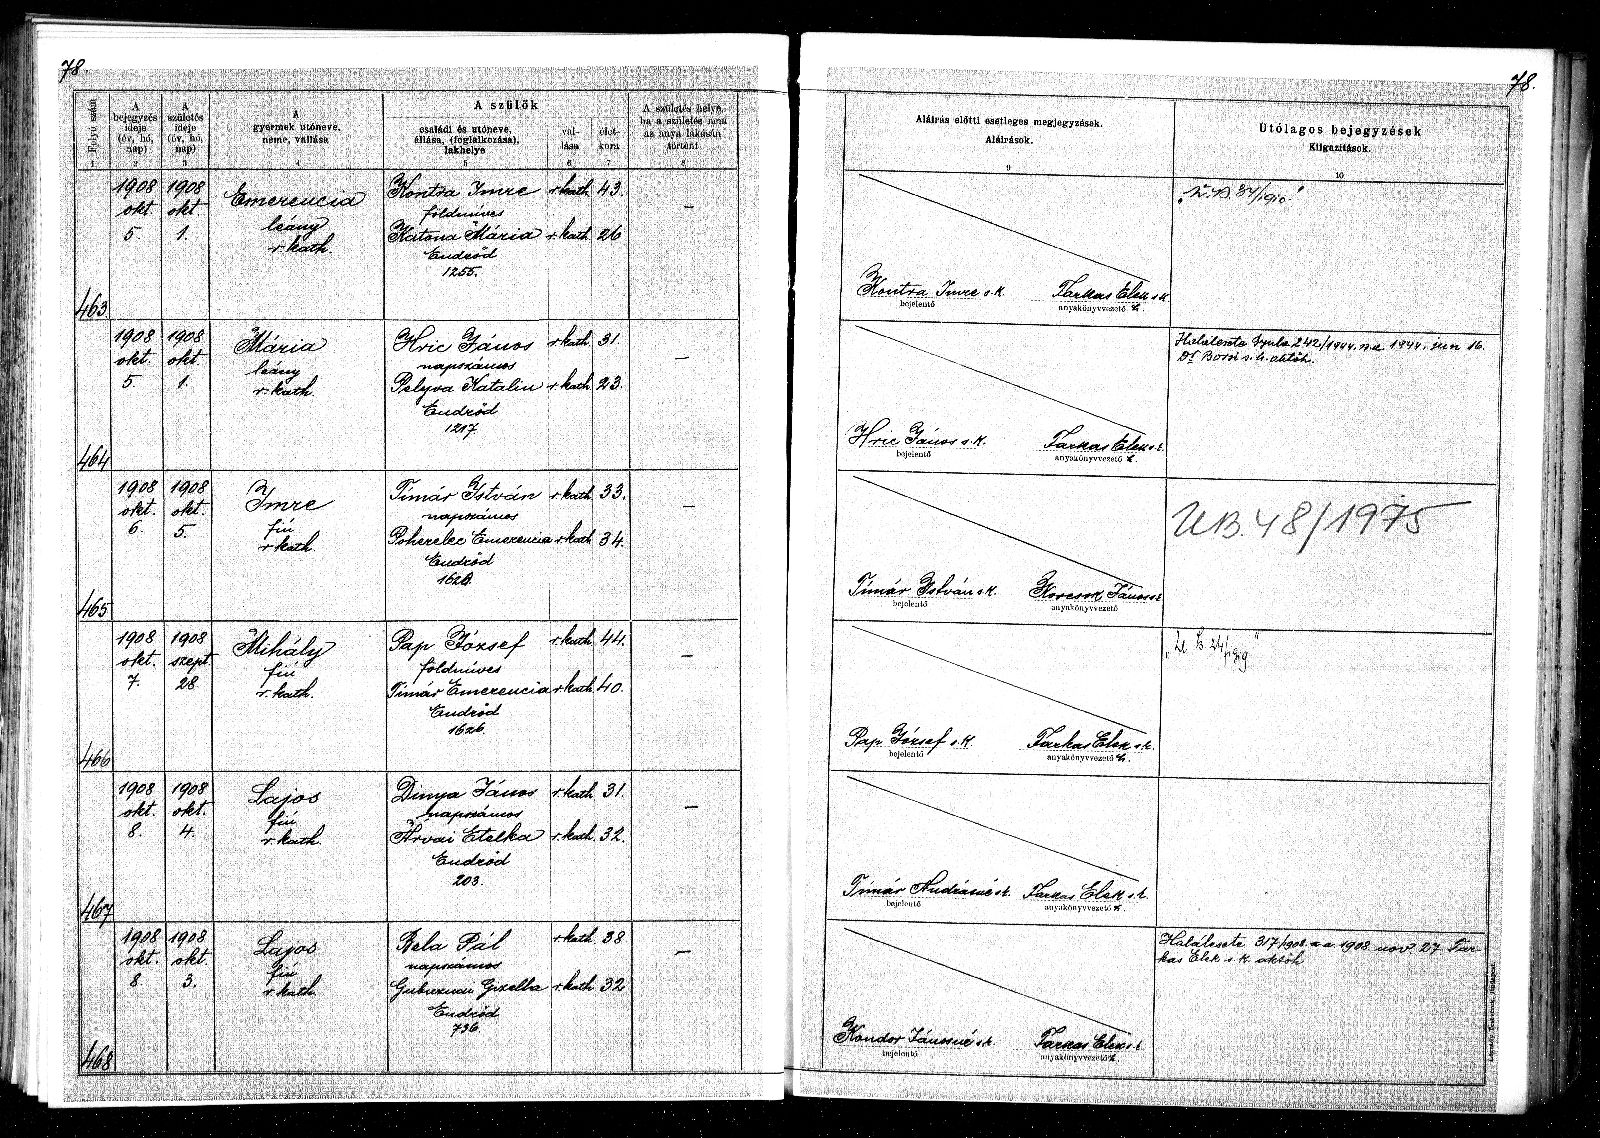 78.
Folyó szám
A bejegyzés ideje (év, hó, nap)
A születés ideje (év, hó, nap)
A gyermek utóneve, neme, vallása
A szülők
családi és utóneve, állása, (foglalkozása), lakhelye
vallása
életkora
A születés helye, ha a születés nem az anya lakásán történt
1 2 3 4 5 6 7 8
463
1908 okt 5
1908 okt 1.
Emerencia
leány
r. kath.
Kontra Imre r. kath. 43.
földmives
Katona Mária r. kath. 26
Endrőd
1255.
–
464
1908 okt. 5
1908 okt 1.
Mária
leány
r. kath.
Hric János r. kath. 31.
napszámos
Pelyva Katalin r. kath. 23.
Endrőd
1217.
–
465
1908 okt. 6.
1908 okt. 5.
Imre
fiú
r. kath.
Tímár István r. kath. 33.
napszámos
Poherelec Emerencia r. kath. 34.
Endrőd
–
466
1908 okt. 7.
1908 szept. 28
Mihály
fiú
r. kath.
Pap József r. kath. 44.
földmives
Tímár Emerencia r. kath. 40.
Endrőd
1626.
–
467
1908 okt. 8.
1908 okt. 4.
Lajos
fiú
r. kath.
Dinya János r. kath. 31.
napszámos
Árvai Etelka r. kath. 32.
Endrőd
203.
–
468
1908 okt. 8.
1908 okt 3.
Lajos
fiú
r. kath.
Bela Pál r. kath. 38
napszámos
Gizella r. kath. 32
Endrőd
736.
–
78.
Aláírás előtti esetleges megjegyzések.
Aláírások.
9
Utólagos bejegyzések
Kiigazítások.
10
Kontra Imre s. k. Farkas Elek s. k.
bejelentő anyakönyvvezető h.
Halálesete Gyula 242/1944. 1944. jun 16.
Dr Borsi s. k. aktóh.
Hric János s. k. Farkas Elek s. k.
bejelentő anyakönyvvezető h.
U.B. 48/1975
Tímár István s. k. Korcsok János s. k.
bejelentő anyakönyvvezető
Pap József s. k. Farkas Elek s. k.
bejelentő anyakönyvvezető h.
Tímár Andrásné s. k. Farkas Elek s. k.
bejelentő anyakönyvvezető h.
Halálesete 317/908. a. a. 1908 nov. 27 Far-
kas Elek s. k. aktóh
Kondor Jánosné s. k. Farkas Elek s. k.
bejelentő anyakönyvvezető h.